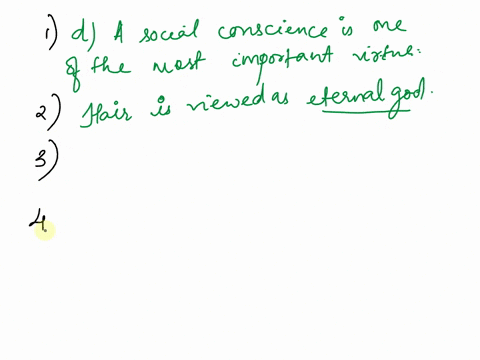 1) d) A social conscience is one
of the most important virtus.
2) Hair is viewed as eternal god.
3)
4